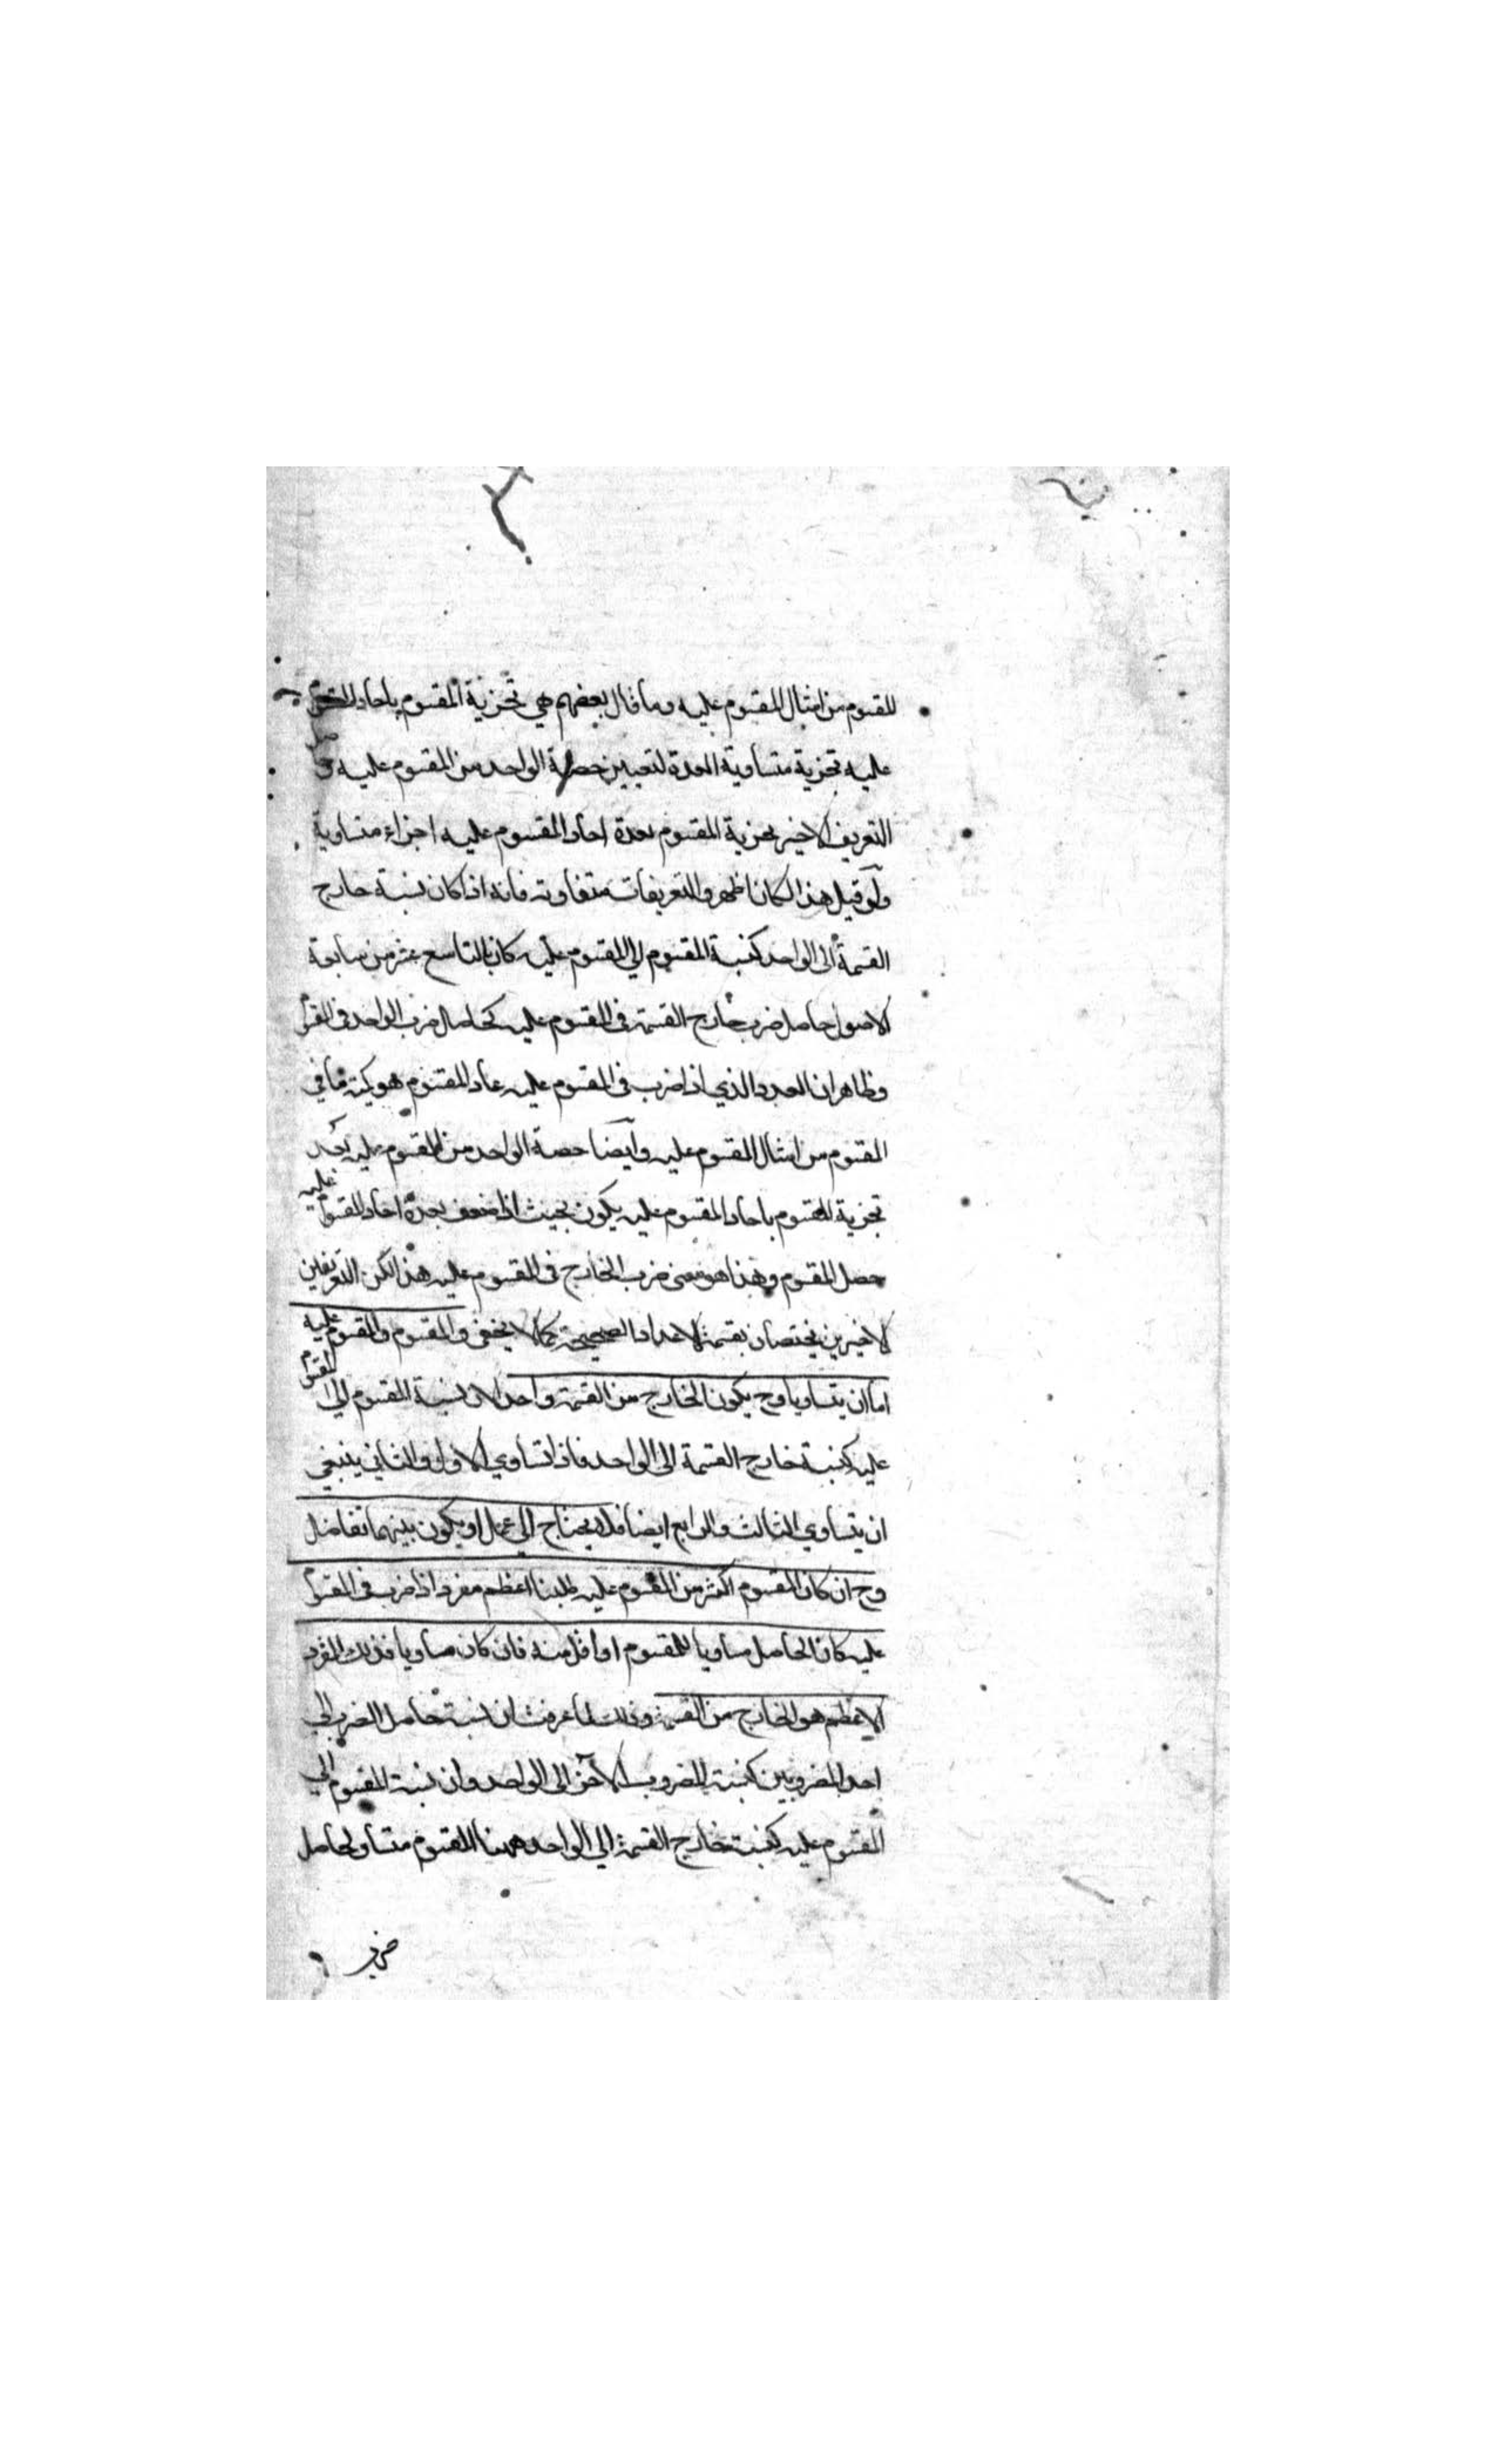 المقسوم من امثال المقسوم عليه وما قال بعضهم هي تجزية المقسوم باحاد المقسوم
عليه تجزية متساوية العدة لتعيين حصة الواحد من المقسوم عليه وحاصل
التعريف الاخير تجزية المقسوم بعدة احاد المقسوم عليه اجزاء متساوية
ولو قيل هذا لكان اظهر والتعريفات متفاوته فانه اذا كان نسبة خارج
القسمة الى الواحد كنسبة المقسوم الي المقسوم عليه كان بالتاسع عشر من سابعة
الاصول حاصل ضرب خارج القسمة في المقسوم عليه كحاصل ضرب الواحد في المقسوم
وظاهر ان العدد الذي اذا ضرب في المقسوم عليه عاد المقسوم هو كمية ما في
المقسوم من امثال المقسوم عليه وايضا حصة الواحد من المقسوم عليه بعد
تجزية المقسوم باحاد المقسوم عليه يكون بحيث اذا ضعف بعدة احاد المقسوم عليه
حصل المقسوم وهذا هو معنى ضرب الخارج في المقسوم عليه هذا لكن التعريفين
الاخيرين يختصان بقسمة الاعداد الصحيحة كما لا يخفى والمقسوم والمقسوم عليه
اما ان يتساويا وح يكون الخارج من القسمة واحدا لان نسبة المقسوم الي المقسوم
عليه كنسبة خارج القسمة الى الواحد فاذا تساوي الاول والثاني ينبغي
ان يتساوي الثالث والرابع ايضا فلا يحتاج الي عمل او يكون بينهما تفاضل
وح ان كان المقسوم اكثر من المقسوم عليه طلبنا اعظم مفرد اذا ضرب في المقسوم
عليه كان الحاصل مساويا للمقسوم او اقل منه فان كان مساويا فذلك المفرد
الاعظم هو الخارج من القسمة وذلك لما عرفت ان نسبة حاصل الضرب الي
احد المضروبين كنسبة المضروب الآخر الى الواحد وان نسبة المقسوم الي
المقسوم عليه كنسبة خارج القسمة الي الواحد وههنا المقسوم متساو لحاصل
ضرب